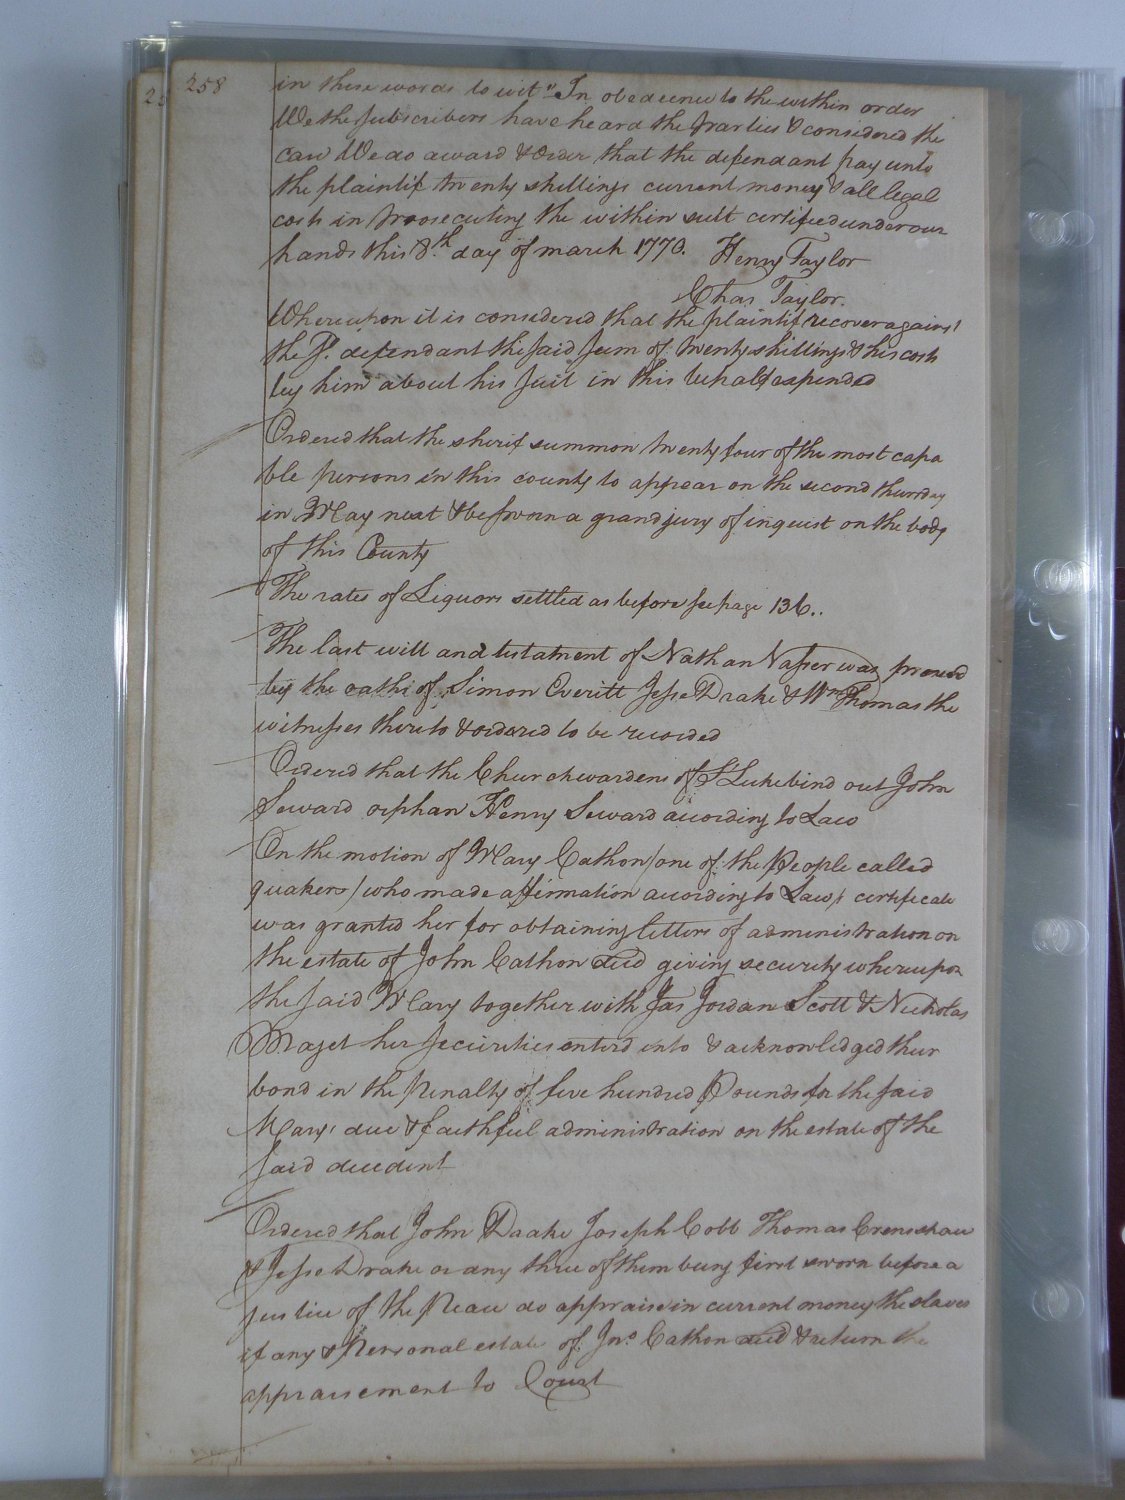 258
in these words to wit "In obedience to the within order
We the Subscribers have heard the parties & considered the
case We do award & order that the defendant pay unto
the plaintif twenty shillings current money & all legal
costs in prosecuting the within suit certified under our
hands this 8th day of march 1770. Henry Taylor
Chas Taylor.
Whereupon it is considered that the plaintif recover against
the sd. defendant the said sum of twenty shillings & his costs
by him about his suit in this behalf expended
Ordered that the sherif summon twenty four of the most capa
ble persons in this county to appear on the second thursday
in May next & be sworn a grand jury of inquest on the body
of this County
The rates of Liquors settled as before see page 136..
The last will and testatment of Nathan Vasser was proved
by the oaths of Simon Everitt Jesse Drake & Wm Thomas the
witnesses thereto & ordered to be recorded
Ordered that the Churchwardens of St Luke bind out John
Seward orphan Henry Seward according to Law
On the motion of Mary Cathon /one of the People called
quakers/ who made affirmation according to Law/ certificate
was granted her for obtaining letters of administration on
the estate of John Cathon decd giving security whereupon
the said Mary together with Jas Jordan Scott & Nicholas
Maget her securities enterd into & acknowledged their
bond in the penalty of five hundred Pounds for the said
Marys due & faithful administration on the estate of the
said decedent
Ordered that John Drake Joseph Cobb Thomas Crenshaw
& Jesse Drake or any three of them being first sworn before a
justice of the Peace do appraise in current money the slaves
if any & Personal estate of Jno. Cathon decd & return the
appraisement to Court